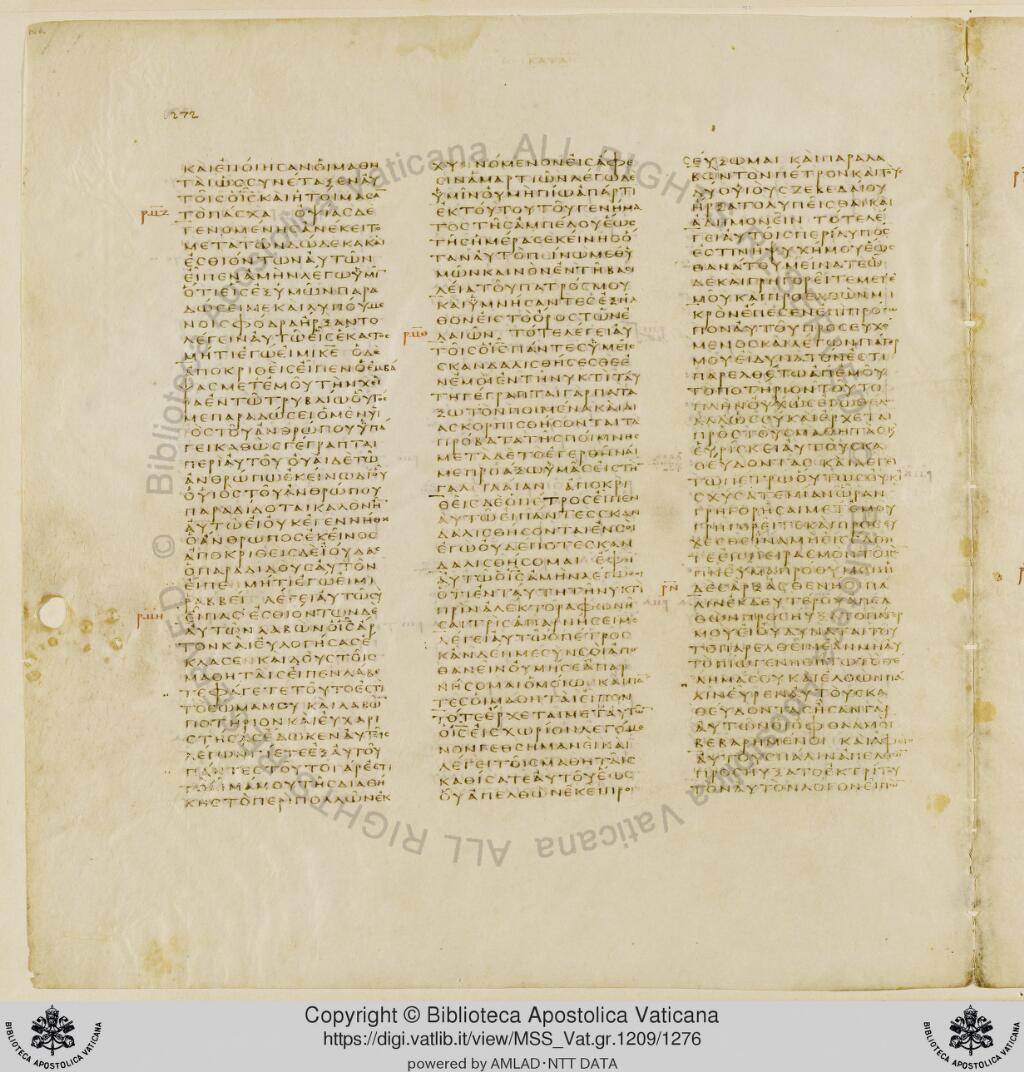 1272
ΚΑΙΕΠΟΙΗϹΑΝΟΙΜΑΘΗ
ΤΑΙΩϹϹΥΝΕΤΑΞΕΝΑΥ
ΤΟΙϹΟΙϹΚΑΙΗΤΟΙΜΑϹΑ
ΤΟΠΑϹΧΑ ΟΨΙΑϹΔΕ
ΓΕΝΟΜΕΝΗϹΑΝΕΚΕΙΤΟ
ΜΕΤΑΤΩΝΔΩΔΕΚΑΚΑΙ
ΕϹΘΙΟΝΤΩΝΑΥΤΩΝ
ΕΙΠΕΝΑΜΗΝΛΕΓΩΥΜΙ
ΟΤΙΕΙϹΕΞΥΜΩΝΠΑΡΑ
ΔΩϹΕΙΜΕΚΑΙΛΥΠΟΥΜΕ
ΝΟΙϹΦΟΔΡΑΗΡΞΑΝΤΟ
ΛΕΓΕΙΝΑΥΤΩΕΙϹΕΚΑϹΤΟϹ
ΜΗΤΙΕΓΩΕΙΜΙΚΕ ΟΔΕ
ΑΠΟΚΡΙΘΕΙϹΕΙΠΕΝΟΕΜΒΑ
ΨΑϹΜΕΤΕΜΟΥΤΗΝΧΕΙ
ΡΑΕΝΤΩΤΡΥΒΛΙΩΟΥΤΟϹ
ΜΕΠΑΡΑΔΩϹΕΙΟΜΕΝΥΙ
ΟϹΤΟΥΑΝΘΡΩΠΟΥΥΠΑ
ΓΕΙΚΑΘΩϹΓΕΓΡΑΠΤΑΙ
ΠΕΡΙΑΥΤΟΥΟΥΑΙΔΕΤΩ
ΑΝΘΡΩΠΩΕΚΕΙΝΩΔΙΟΥ
ΟΥΙΟϹΤΟΥΑΝΘΡΩΠΟΥ
ΠΑΡΑΔΙΔΟΤΑΙΚΑΛΟΝΗ
ΑΥΤΩΕΙΟΥΚΕΓΕΝΝΗΘΗ
ΟΑΝΘΡΩΠΟϹΕΚΕΙΝΟϹ
ΑΠΟΚΡΙΘΕΙϹΔΕΙΟΥΔΑϹ
ΟΠΑΡΑΔΙΔΟΥϹΑΥΤΟΝ
ΕΙΠΕ ΜΗΤΙΕΓΩΕΙΜΙ
ΡΑΒΒΕΙ ΛΕΓΕΙΑΥΤΩϹΥ
ΕΙΠΑϹ ΕϹΘΙΟΝΤΩΝΔΕ
ΑΥΤΩΝΛΑΒΩΝΟΙϹΑΡ
ΤΟΝΚΑΙΕΥΛΟΓΗϹΑϹΕ
ΚΛΑϹΕΝΚΑΙΔΟΥϹΤΟΙϹ
ΜΑΘΗΤΑΙϹΕΙΠΕΝΛΑΒΕ
ΤΕΦΑΓΕΤΕΤΟΥΤΟΕϹΤΙ
ΤΟϹΩΜΑΜΟΥ ΚΑΙΛΑΒΩ
ΠΟΤΗΡΙΟΝΚΑΙΕΥΧΑΡΙ
ϹΤΗϹΑϹΕΔΩΚΕΝΑΥΤΟΙϹ
ΛΕΓΩΝΠΙΕΤΕΕΞΑΥΤΟΥ
ΠΑΝΤΕϹΤΟΥΤΟΓΑΡΕϹΤΙ
ΤΟΑΙΜΑΜΟΥΤΗϹΔΙΑΘΗ
ΚΗϹΤΟΠΕΡΙΠΟΛΛΩΝΕΚ
ΧΥΝΝΟΜΕΝΟΝΕΙϹΑΦΕ
ϹΙΝΑΜΑΡΤΙΩΝΛΕΓΩΔΕ
ΥΜΙΝΟΥΜΗΠΙΩΑΠΑΡΤΙ
ΕΚΤΟΥΤΟΥΤΟΥΓΕΝΗΜΑ
ΤΟϹΤΗϹΑΜΠΕΛΟΥΕΩϹ
ΤΗϹΗΜΕΡΑϹΕΚΕΙΝΗϹΟ
ΤΑΝΑΥΤΟΠΙΝΩΜΕΘΥ
ΜΩΝΚΑΙΝΟΝΕΝΤΗΒΑϹΙ
ΛΕΙΑΤΟΥΠΑΤΡΟϹΜΟΥ
ΚΑΙΥΜΝΗϹΑΝΤΕϹΕΞΗΛ
ΘΟΝΕΙϹΤΟΟΡΟϹΤΩΝΕ
ΛΑΙΩΝ ΤΟΤΕΛΕΓΕΙΑΥ
ΤΟΙϹΟΙϹΠΑΝΤΕϹΥΜΕΙϹ
ϹΚΑΝΔΑΛΙϹΘΗϹΕϹΘΕ
ΕΝΕΜΟΙΕΝΤΗΝΥΚΤΙΤΑΥ
ΤΗΓΕΓΡΑΠΤΑΙΓΑΡΠΑΤΑ
ΞΩΤΟΝΠΟΙΜΕΝΑΚΑΙΔΙ
ΑϹΚΟΡΠΙϹΘΗϹΟΝΤΑΙΤΑ
ΠΡΟΒΑΤΑΤΗϹΠΟΙΜΝΗϹ
ΜΕΤΑΔΕΤΟΕΓΕΡΘΗΝΑΙ
ΜΕΠΡΟΑΞΩΥΜΑϹΕΙϹΤΗ
ΓΑΛΙΛΑΙΑΝ ΑΠΟΚΡΙ
ΘΕΙϹΔΕΟΠΕΤΡΟϹΕΙΠΕΝ
ΑΥΤΩΕΙΠΑΝΤΕϹϹΚΑΝ
ΔΑΛΙϹΘΗϹΟΝΤΑΙΕΝϹΟΙ
ΕΓΩΟΥΔΕΠΟΤΕϹΚΑΝ
ΔΑΛΙϹΘΗϹΟΜΑΙ ΕΦΗ
ΑΥΤΩΟΙϹΑΜΗΝΛΕΓΩϹΟΙ
ΟΤΙΕΝΤΑΥΤΗΤΗΝΥΚΤΙ
ΠΡΙΝΑΛΕΚΤΟΡΑΦΩΝΗ
ϹΑΙΤΡΙϹΑΠΑΡΝΗϹΕΙΜΕ
ΛΕΓΕΙΑΥΤΩΟΠΕΤΡΟϹ
ΚΑΝΔΕΗΜΕϹΥΝϹΟΙΑΠΟ
ΘΑΝΕΙΝΟΥΜΗϹΕΑΠΑΡ
ΝΗϹΟΜΑΙΟΜΟΙΩϹΚΑΙΠΑ
ΤΕϹΟΙΜΑΘΗΤΑΙΕΙΠΟΝ
ΤΟΤΕΕΡΧΕΤΑΙΜΕΤΑΥΤΩ
ΟΙϹΕΙϹΧΩΡΙΟΝΛΕΓΟΜΕ
ΝΟΝΓΕΘϹΗΜΑΝΕΙΚΑΙ
ΛΕΓΕΙΤΟΙϹΜΑΘΗΤΑΙϹ
ΚΑΘΙϹΑΤΕΑΥΤΟΥΕΩϹ
ΟΥΑΠΕΛΘΩΝΕΚΕΙΠΡΟϹ
ΕΥΞΩΜΑΙ ΚΑΙΠΑΡΑΛΑ
ΒΩΝΤΟΝΠΕΤΡΟΝΚΑΙΤΟΥϹ
ΔΥΟΥΙΟΥϹΖΕΒΕΔΑΙΟΥ
ΗΡΞΑΤΟΛΥΠΕΙϹΘΑΙΚΑΙ
ΑΔΗΜΟΝΕΙΝ ΤΟΤΕΛΕ
ΓΕΙΑΥΤΟΙϹΠΕΡΙΛΥΠΟϹ
ΕϹΤΙΝΗΨΥΧΗΜΟΥΕΩϹ
ΘΑΝΑΤΟΥΜΕΙΝΑΤΕΩ
ΔΕΚΑΙΓΡΗΓΟΡΕΙΤΕΜΕΤΕ
ΜΟΥΚΑΙΠΡΟΕΛΘΩΝΜΙ
ΚΡΟΝΕΠΕϹΕΝΕΠΙΠΡΟϹΩ
ΠΟΝΑΥΤΟΥΠΡΟϹΕΥΧΟ
ΜΕΝΟϹΚΑΙΛΕΓΩΝΠΑΤΕΡ
ΜΟΥΕΙΔΥΝΑΤΟΝΕϹΤΙ
ΠΑΡΕΛΘΕΤΩΑΠΕΜΟΥ
ΤΟΠΟΤΗΡΙΟΝΤΟΥΤΟ
ΠΛΗΝΟΥΧΩϹΕΓΩΘΕΛΩ
ΑΛΛΩϹϹΥΚΑΙΕΡΧΕΤΑΙ
ΠΡΟϹΤΟΥϹΜΑΘΗΤΑϹΚΑΙ
ΕΥΡΙϹΚΕΙΑΥΤΟΥϹΚΑ
ΘΕΥΔΟΝΤΑϹ ΚΑΙΛΕΓΕΙ
ΤΩΠΕΤΡΩΟΥΤΩϹΟΥΚΙ
ϹΧΥϹΑΤΕΜΙΑΝΩΡΑΝ
ΓΡΗΓΟΡΗϹΑΙΜΕΤΕΜΟΥ
ΓΡΗΓΟΡΕΙΤΕΚΑΙΠΡΟϹΕΥ
ΧΕϹΘΕΙΝΑΜΗΕΙϹΕΛΘΗ
ΤΕΕΙϹΠΕΙΡΑϹΜΟΝΤΟΜΕ
ΠΝΕΥΜΑΠΡΟΘΥΜΟΝΗ
ΔΕϹΑΡΞΑϹΘΕΝΗϹ ΠΑ
ΛΙΝΕΚΔΕΥΤΕΡΟΥΑΠΕΛ
ΘΩΝΠΡΟϹΗΥΞΑΤΟΠΑΤΕΡ
ΜΟΥΕΙΟΥΔΥΝΑΤΑΙΤΟΥ
ΤΟΠΑΡΕΛΘΕΙΝΕΑΝΜΗΑΥ
ΤΟΠΙΩΓΕΝΗΘΗΤΩΤΟΘΕ
ΛΗΜΑϹΟΥ ΚΑΙΕΛΘΩΝΠΑ
ΛΙΝΕΥΡΕΝΑΥΤΟΥϹΚΑ
ΘΕΥΔΟΝΤΑϹΗϹΑΝΓΑΡ
ΑΥΤΩΝΟΙΟΦΘΑΛΜΟΙ
ΒΕΒΑΡΗΜΕΝΟΙ ΚΑΙΑΦΕΙϹ
ΑΥΤΟΥϹΠΑΛΙΝΑΠΕΛΘΩ
ΠΡΟϹΗΥΞΑΤΟΕΚΤΡΙΤΟΥ
ΤΟΝΑΥΤΟΝΛΟΓΟΝΕΙΠΩ
Copyright © Biblioteca Apostolica Vaticana
https://digi.vatlib.it/view/MSS_Vat.gr.1209/1276
powered by AMLAD·NTT DATA